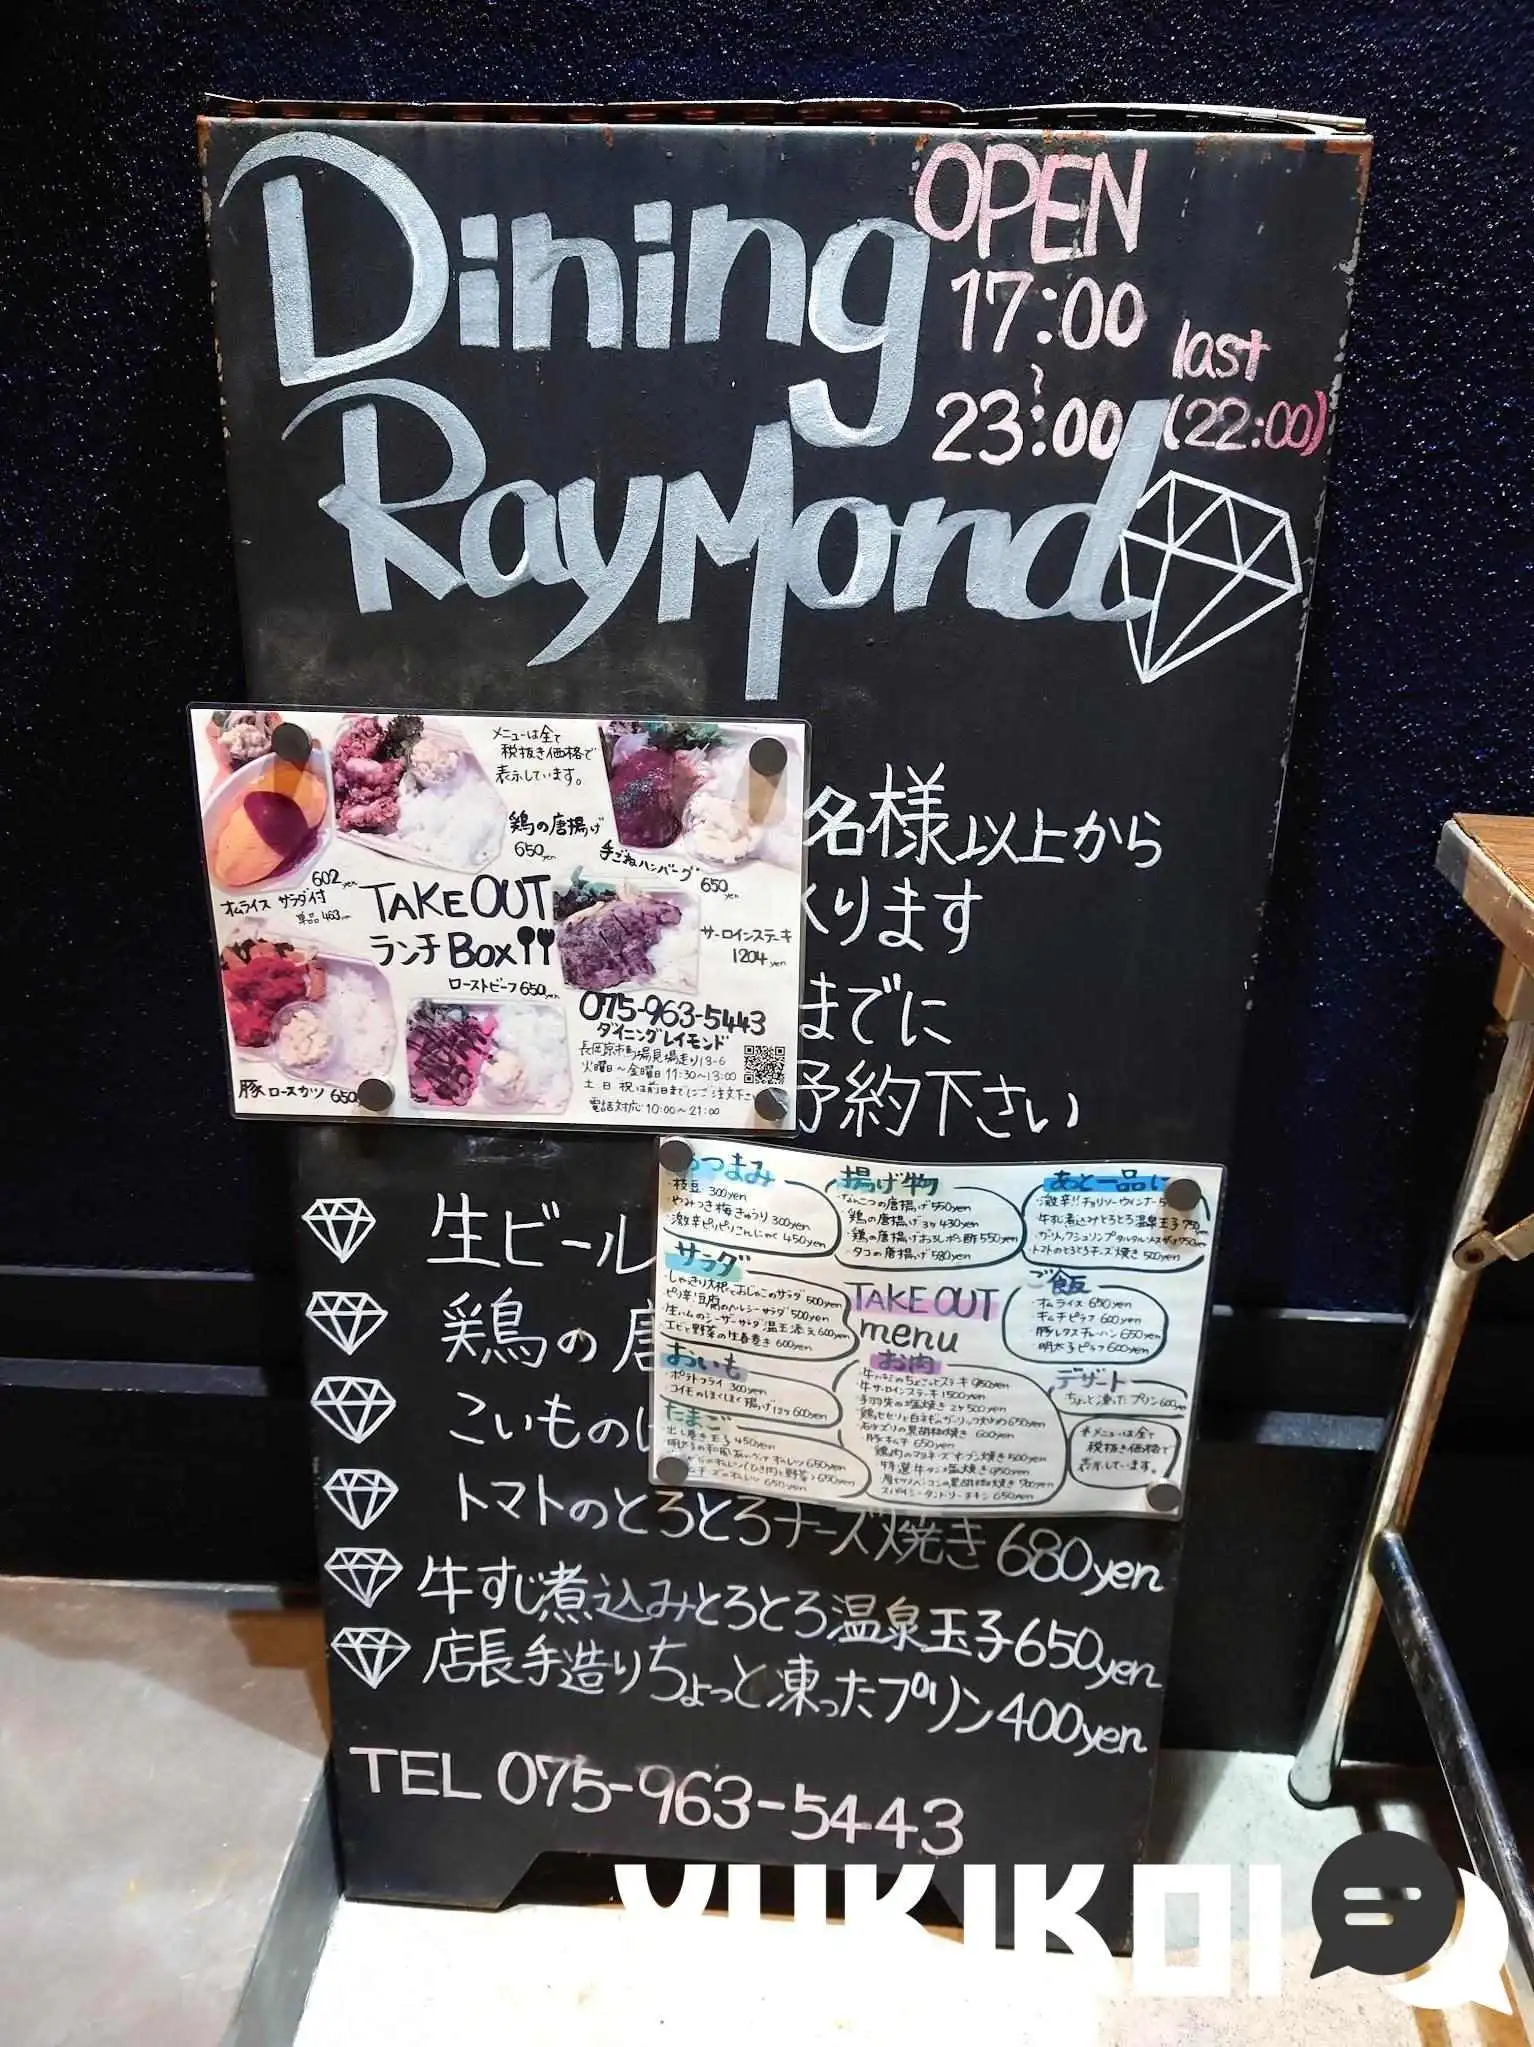 Dining
RayMond
OPEN
17:00
~
23:00
last
(22:00)
名様以上から
くります
までに
予約下さい
メニューは全て
税抜き価格で
表示しています。
鶏の唐揚げ
650yen
手ごねハンバーグ
650yen
602yen
オムライス サラダ付
単品463yen
TAKE OUT
ランチ Box
サーロインステーキ
1204yen
ローストビーフ 650yen
豚ロースカツ 650
075-963-5443
ダイニングレイモンド
長岡京市馬場見場走り13-6
火曜日~金曜日 11:30~13:00
土 日 祝は前日までにご注文下さい
電話対応 10:00~21:00
おつまみ
・枝豆 300yen
・やみつき梅きゅうり 300yen
・激辛ピリピリこんにゃく 450yen
揚げ物
・なんこつの唐揚げ 550yen
・鶏の唐揚げ 3ヶ 430yen
・鶏の唐揚げおろしポン酢 550yen
・タコの唐揚げ 580yen
あと一品に
・激辛!!チョリソーウインナー
・牛すじ煮込みとろとろ温泉玉子 750yen
・トマトのとろとろチーズ焼き 500yen
サラダ
・しゃきり大根とおじゃこのサラダ 500yen
・ピリ辛!豆腐のヘルシーサラダ 500yen
・生ハムのシーザーサラダ温玉添え 600yen
・エビと野菜の生春巻き 600yen
TAKE OUT
menu
ご飯
・オムライス 650yen
・キムチピラフ 600yen
・豚レタスチャーハン 650yen
・明太子ピラフ 600yen
おいも
・ポテトフライ 300yen
・コイモのほくほく揚げ 600yen
たまご
・出し巻き玉子 450yen
お肉
・牛ハラミのちょこっとステーキ 980yen
・牛サーロインステーキ 1500yen
・手羽先の塩焼き 2ヶ 500yen
・豚キムチ 650yen
・スパイシータンドリーチキン 650yen
デザート
ちょっと凍ったプリン 600yen
*メニューは全て
税抜き価格で
表示しています。
生ビール
鶏の唐
こいもの
トマトのとろとろチーズ焼き 680yen
牛すじ煮込みとろとろ温泉玉子 650yen
店長手造りちょっと凍ったプリン 400yen
TEL 075-963-5443